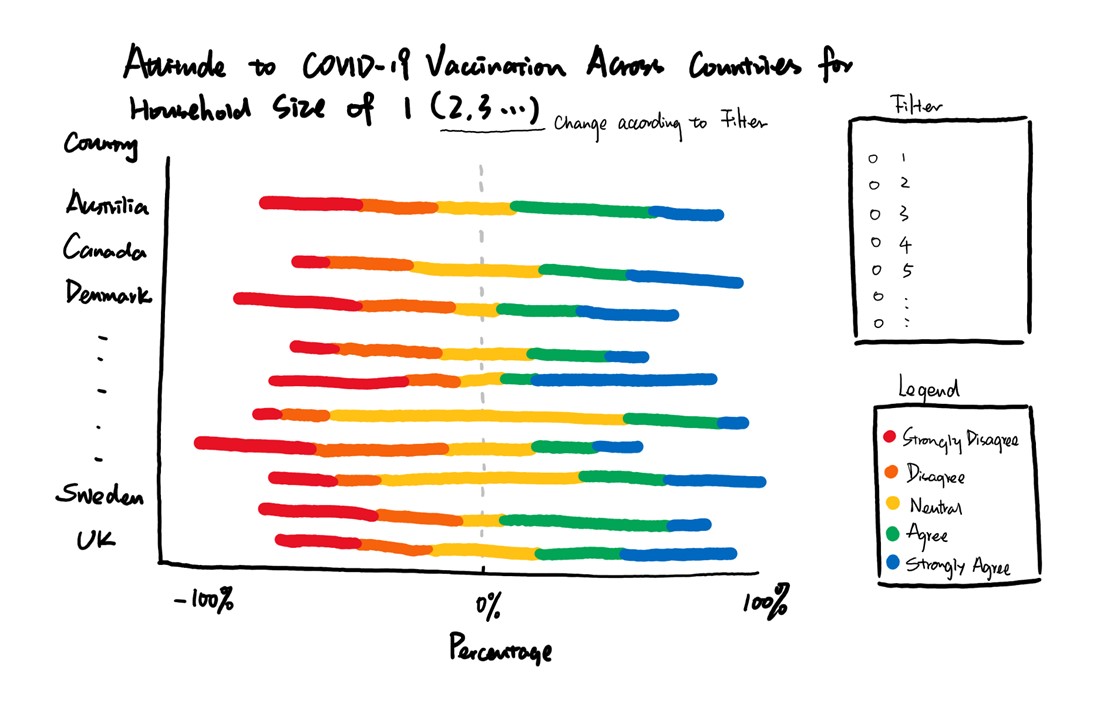 Attitude to COVID-19 Vaccination Across Countries for
Household Size of 1 (2,3...)
Change according to Filter
Country
Austrilia
Canada
Denmark
Sweden
UK
-100%
0%
100%
Percentage
Filter
1
2
3
4
5
Legend
Strongly Disagree
Disagree
Neutral
Agree
Strongly Agree